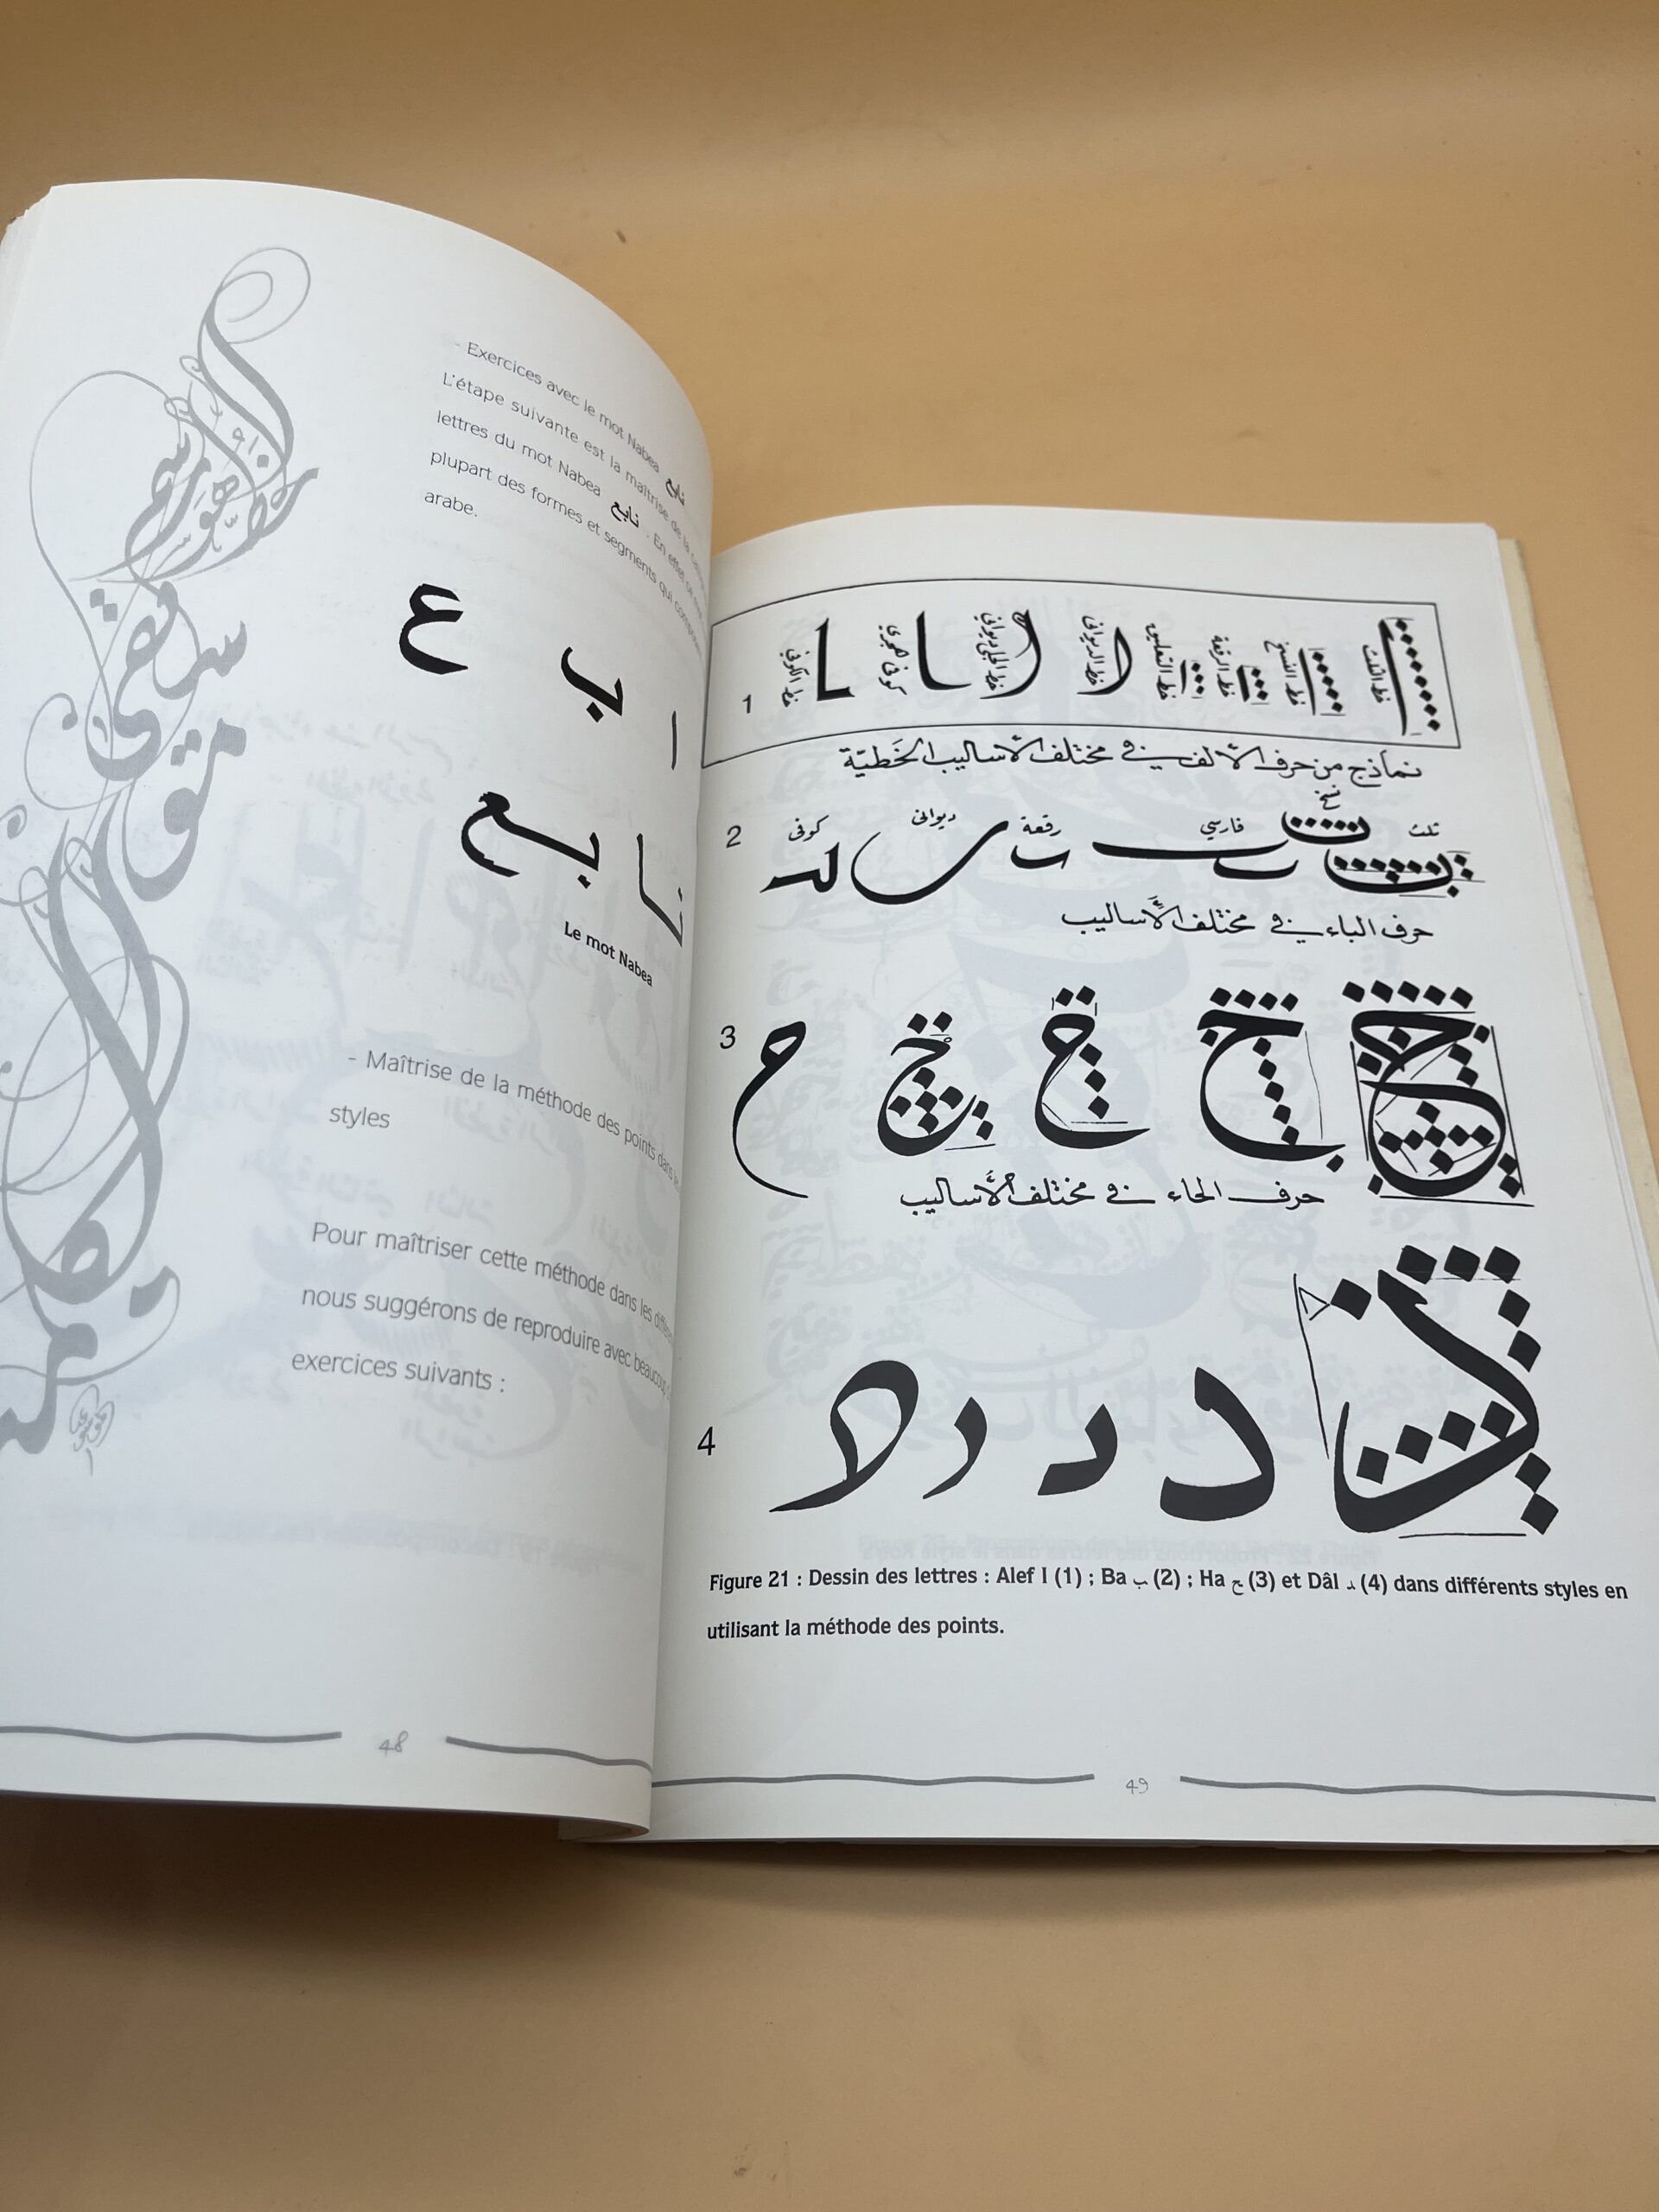 - Exercices avec le mot Nabea نابع
L'étape suivante est la maîtrise de la
lettres du mot Nabea نابع . En effet ce
plupart des formes et segments qui composent
arabe.
ع ب ا
نابع
Le mot Nabea
- Maîtrise de la méthode des points dans
styles
Pour maîtriser cette méthode dans les
nous suggérons de reproduire avec beaucoup
exercices suivants :
48
1
خط الثلث
خط النسخ
خط الرقعة
خط التعليق
خط الديواني
خط الجلي ديواني
خط الكوفي
نماذج من حرف الألف في مختلف الأساليب الخَطيّة
2
ثلث
نسخ
فارسي
رقعة
ديواني
كوفي
حرف الباء في مختلف الأساليب
3
حرف الحاء في مختلف الأساليب
4
Figure 21 : Dessin des lettres : Alef ا (1) ; Ba ب (2) ; Ha ح (3) et Dâl د (4) dans différents styles en
utilisant la méthode des points.
49